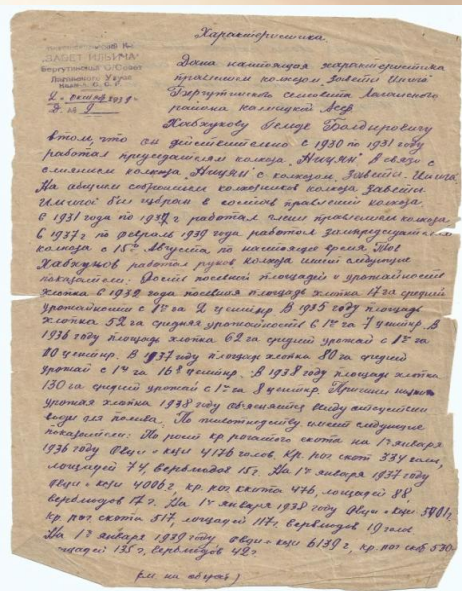 Характеристика
"ЗАВЕТ ИЛЬИЧА"
Бергутинский С/Совет
Лаганского Улуса
Калм. А. С. С. Р.
2 октября 1939 г.
№ 9
Дана настоящая характеристика
правлением колхоза Заветы Ильича
Бергутинского сельсовета Лаганского
района Калмыцкой АССР
Хавжукову Болдыровичу
в том, что он действительно с 1930 по 1931 году
работал председателем колхоза "Ницян". В связи с
слиянием колхоза "Ницян" с колхозом Заветы Ильича.
На общем собрании колхозников колхоза Заветы
Ильича был избран в состав правления колхоза.
С 1931 года по 1937 г работал член правлением колхоза
в 1937 г по февраль 1939 года работал зампредседателем
колхоза с 15го Августа по настоящее время Тов
Хавжуков работал руков. колхоза имеет следующие
показатели: посевной площадей и урожайность
хлопка в 1932 года посевная площадь хлопка 17 га средний
урожайности с 1го га 2 центнр. В 1935 году площадь
хлопка 52 га средняя урожайность с 1го га 7 центнр. В
1936 году площадь хлопка 62 га средний урожай с 1го га
10 центнр. В 1937 году площадь хлопка 80 га средний
урожай с 1го га 16,8 центнр. В 1938 году площадь хлопка
130 га средний урожай с 1го га 8 центнр. Причины низкого
урожая хлопка 1938 году объясняется ввиду отсутствии
воды для полива. По животноведству имеет следующие
показатели: По рост кр рогатого скота на 1е января
1936 году Овци и кози 4176 голов. Кр. рог скот 334 голов,
лошадей 74, верблюдов 15 г. На 1е января 1937 году
Овци и кози 4006 г. кр. рог скота 476, лошадей 88,
верблюдов 17 г. На 1е января 1938 году Овци и кози 5401 г.
кр. рог скота 517, лошадей 117 г. верблюдов 19 голов
На 1е января 1939 году овци и кози 6139 г, кр. рог скот 530
лошадей 135 г, верблюдов 42 г
(см. на оборот.)